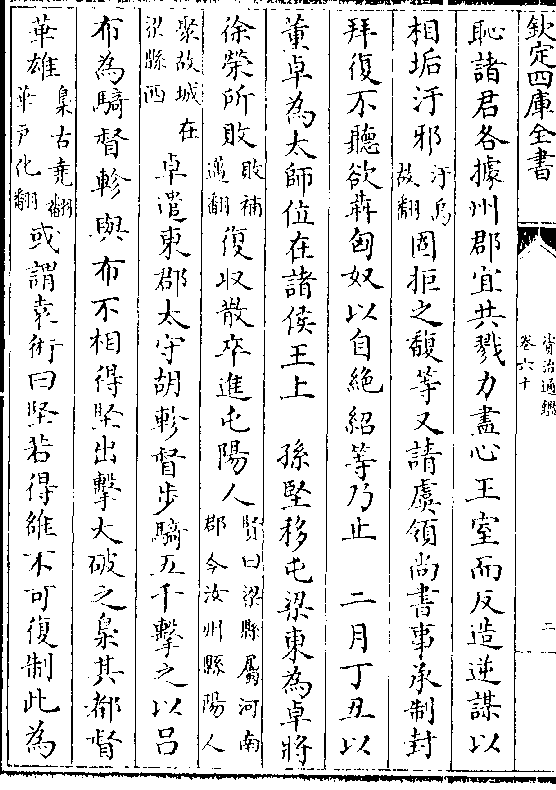 欽定四庫全書
資治通鑑
卷六十
二
恥諸君各據州郡宜共戮力盡心王室而反造逆謀以
相垢汙邪汙烏故翻固拒之馥等又請虞領尚書事承制封
拜復不聽欲奔匈奴以自絶紹等乃止 二月丁丑以
董卓為太師位在諸侯王上 孫堅移屯梁東為卓將
徐榮所敗敗補邁翻復收散卒進屯陽人賢曰梁縣屬河南郡今汝州縣陽人
聚故城在梁縣西 卓遣東郡太守胡軫督步騎五千擊之以吕
布為騎督軫與布不相得堅出擊大破之梟其都督
華雄梟古堯翻華戶化翻或謂袁術曰堅若得雒不可復制此為